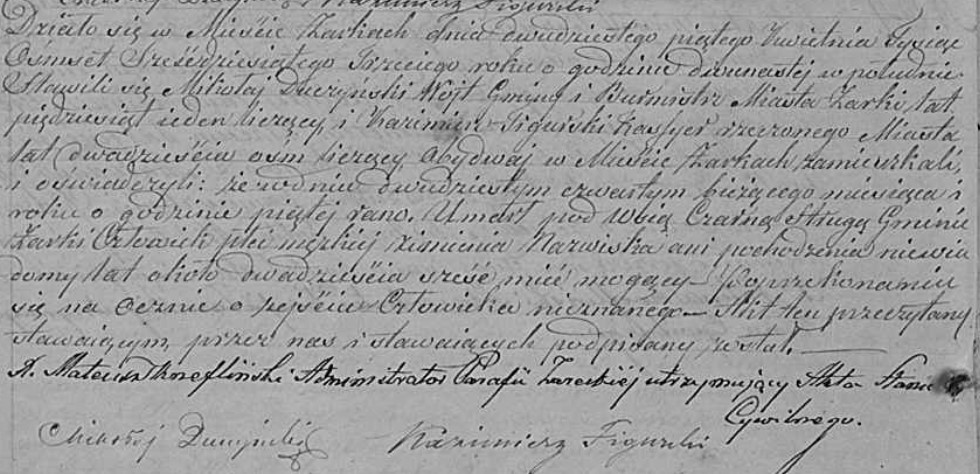 Kazimierz Figurski
Działo się w Mieście Żarkach dnia dwudziestego piątego Kwietnia Tysiąc
Ośmset Sześćdziesiątego Trzeciego roku o godzinie dwunastej w południe.
Stawili się Mikołaj Duczyński Wójt Gminy i Burmistrz Miasta Żarki, lat
pięćdziesiąt ieden liczący, i Kazimierz Figurski Kassyer rzeczonego Miasta
lat dwadzieścia ośm liczący obydwaj w Mieście Żarkach zamieszkali,
i oświadczyli: że w dniu dwudziestym czwartym bieżącego miesiąca i
roku o godzinie piątej rano. Umarł pod wsią Czarną Strugą Gminie
Żarki Człowiek płci męzkiej z imienia Nazwiska ani pochodzenia niewia
domy lat około dwadzieścia sześć mieć mogący – Po przekonaniu
się na ocznie o zejściu Człowieka nieznanego – Akt ten przeczytany
stawaiącym, przez nas i stawaiących podpisany został.
X. Mateusz Administrator Parafii Żareckiéj utrzymujący Akta Stanu
Cywilnego.
Mikołaj Duczyński Kazimierz Figurski